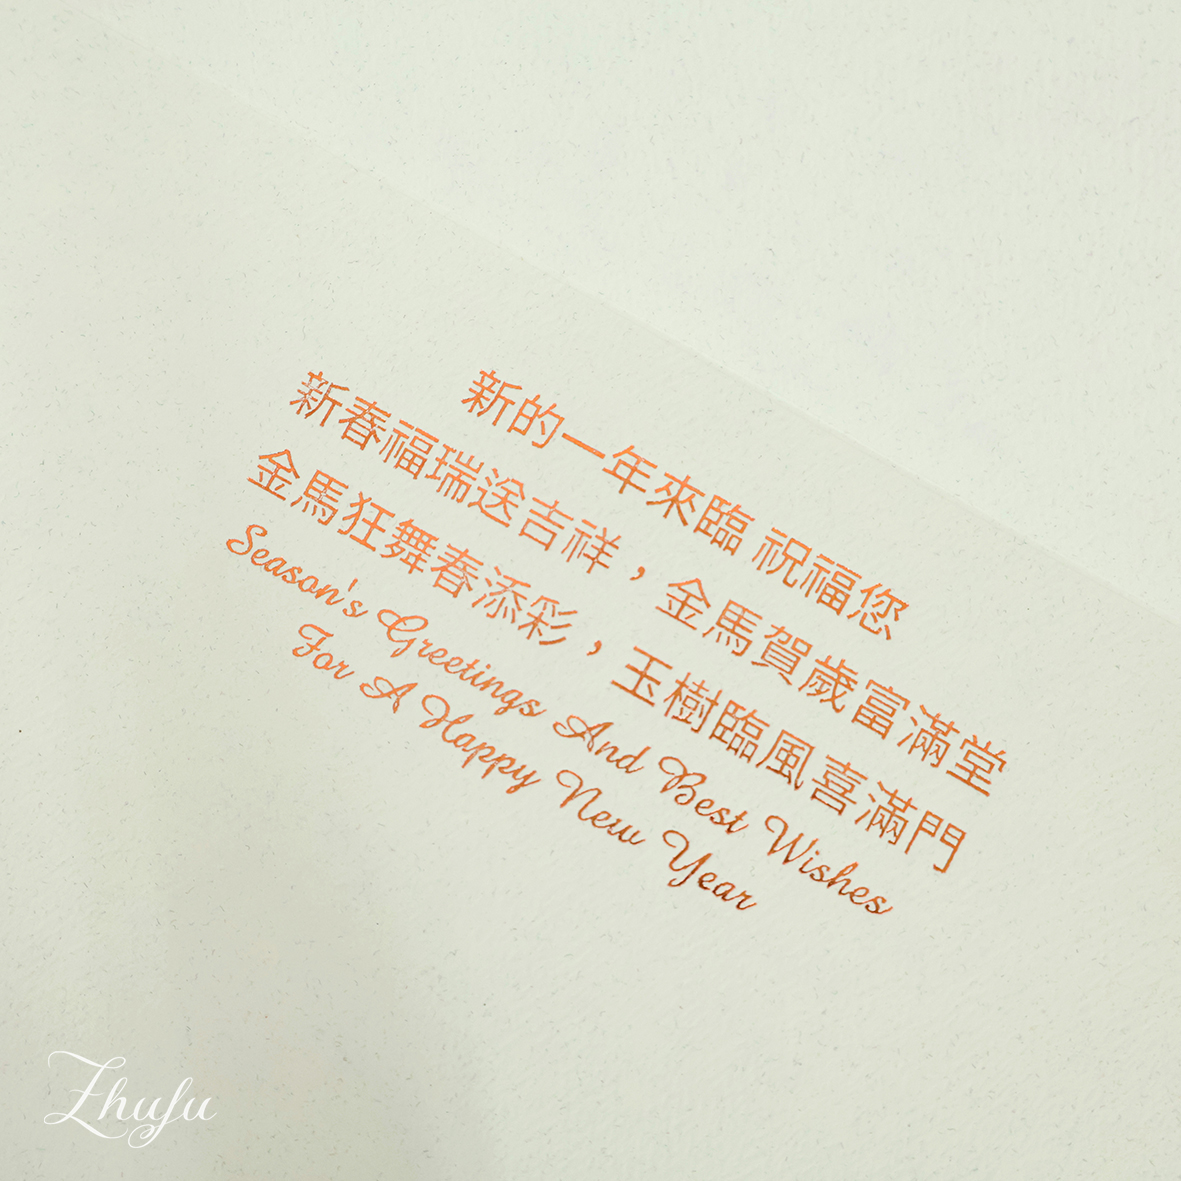 新的一年來臨 祝福您
新春福瑞送吉祥，金馬賀歲富滿堂
金馬狂舞春添彩，玉樹臨風喜滿門
Season's Greetings And Best Wishes
For A Happy New Year
Zhufu